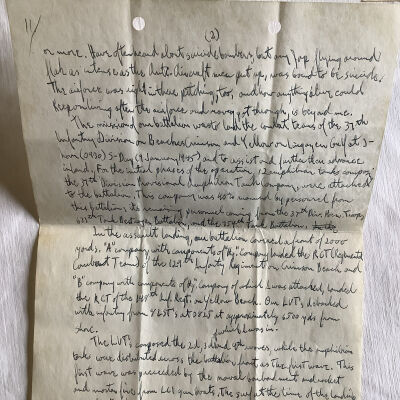 11/
(2)
or more. Have often read about suicide bombers, but any Jap flying around
flak as intense as the Anti-Aircraft men put up, was bound to be suicide.
The airforce was right in there pitching, too, and how anything alive could
keep on living after the airforce and navy got through, is beyond me.
The mission of our battalion was to land the combat teams of the 37th
Infantry Division on Beaches Crimson and Yellow on Lingayen Gulf at J-
hour (0930) S-Day (9 January, 1945) and to assist in further advance
inland. For the initial phases of the operation, amphibian tanks company,
the 37th Division Provisional Amphibian Tank Company, were attached
to the battalion. This company was 40% manned by personnel from
the battalion, its remaining personnel coming from the 37th Div Recn. Troop,
637th Tank Destroyer Battalion, and the 754th Tank Battalion.
In the assault landing, our battalion covered a front of 2000
yards. "A" company with components of "Hq" company landed the RCT (Regimental
Combat Team) of the 129th Infantry Regiment on Crimson Beach and
"B" company with components of "Hq" company of which I was attached, landed
the RCT of the 148th Inf Regt. on Yellow Beach. Our LVT's debarked
with infantry from 4 LST's at 0825 at approximately 6500 yds from
shore.
which I was in.
The LVT's composed the 2d, 3d and 4th waves, while the amphibian
tanks were distributed across the battalion front as the first wave. This
first wave was preceded by the naval bombardment and rocket
and mortar fire from LCI gun boats. The surf at the time of the landing